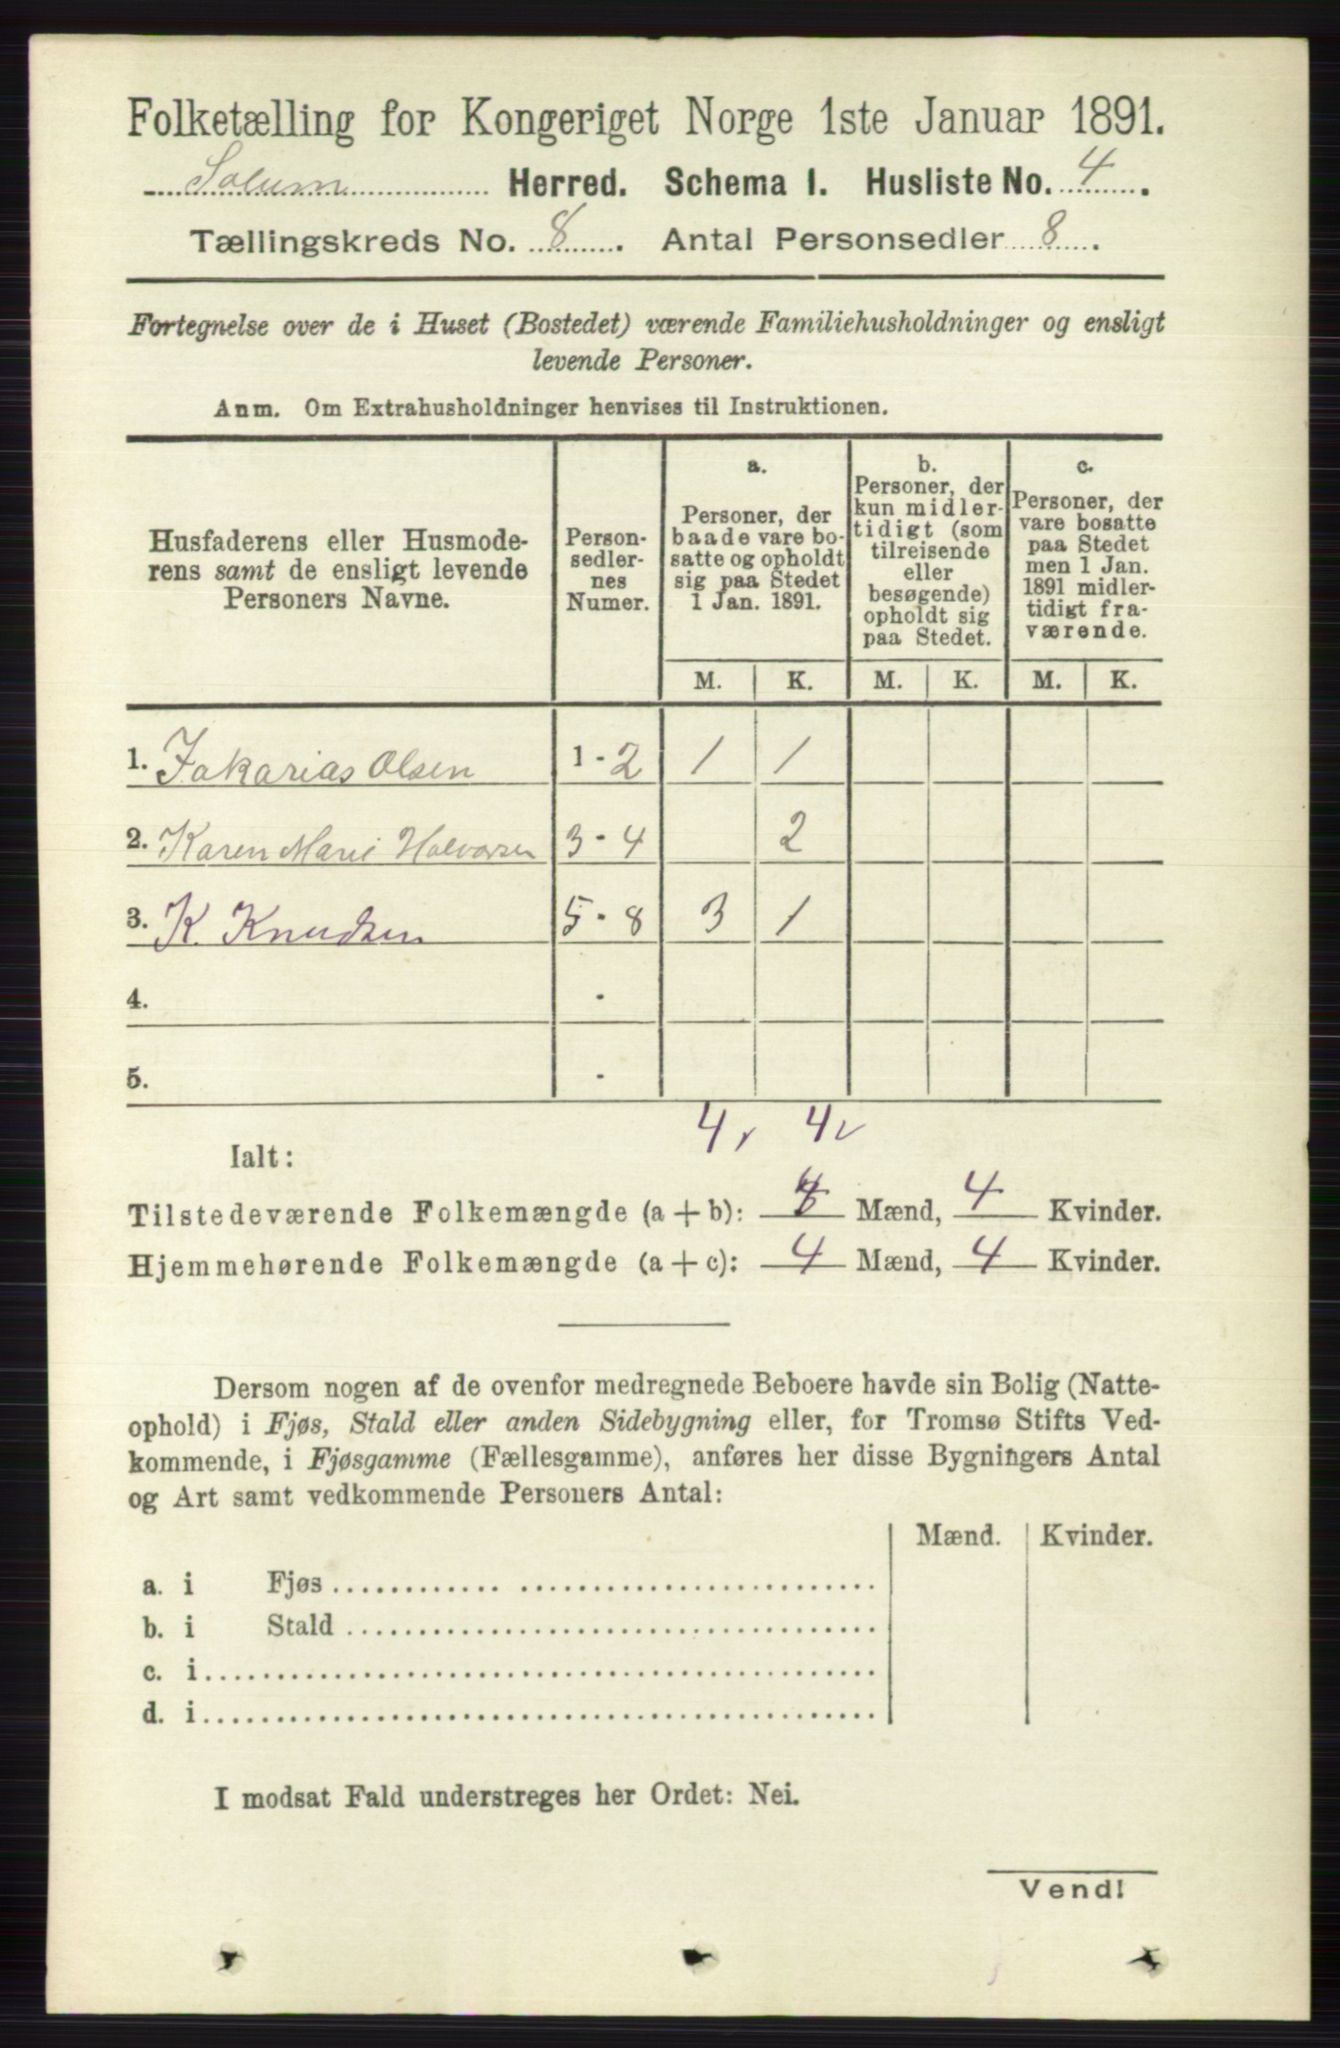 Folketælling for Kongeriget Norge 1ste Januar 1891.
Solum Herred. Schema I. Husliste No. 4.
Tællingskreds No. 8. Antal Personsedler 8.
Fortegnelse over de i Huset (Bostedet) værende Familiehusholdninger og ensligt
levende Personer.
Anm. Om Extrahusholdninger henvises til Instruktionen.
Husfaderens eller Husmode-
rens samt de ensligt levende
Personers Navne.
Person-
sedler-
nes
Numer.
a.
Personer, der
baade vare bo-
satte og opholdt
sig paa Stedet
1 Jan. 1891.
b.
Personer, der
kun midler-
tidigt (som
tilreisende
eller
besøgende)
opholdt sig
paa Stedet.
c.
Personer, der
vare bosatte
paa Stedet
men 1 Jan.
1891 midler-
tidigt fra-
værende.
M. K. M. K. M. K.
1. Jakarias Olsen 1 - 2 1 1
2. Karen Marie Halvorsen 3 - 4 2
3. K. Knudsen 5 - 8 3 1
4. -
5. -
4 4
Ialt:
Tilstedeværende Folkemængde (a + b): 4 Mænd, 4 Kvinder.
Hjemmehørende Folkemængde (a + c): 4 Mænd, 4 Kvinder.
Dersom nogen af de ovenfor medregnede Beboere havde sin Bolig (Natte-
ophold) i Fjøs, Stald eller anden Sidebygning eller, for Tromsø Stifts Ved-
kommende, i Fjøsgamme (Fællesgamme), anføres her disse Bygningers Antal
og Art samt vedkommende Personers Antal:
Mænd. Kvinder.
a. i Fjøs
b. i Stald
c. i
d. i
I modsat Fald understreges her Ordet: Nei.
Vend!